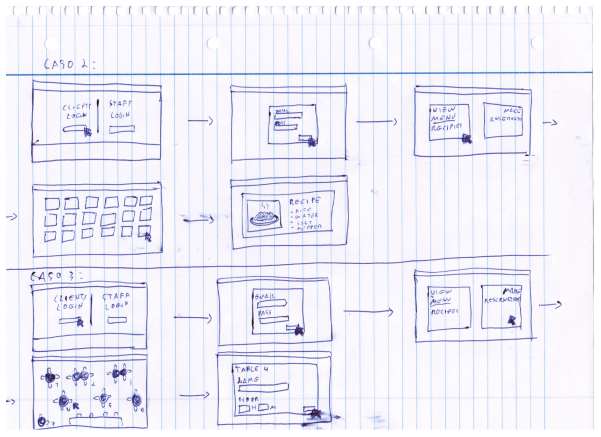 CASO 2:
CLIENTS LOGIN
STAFF LOGIN
PASS
VIEW
MENU
RECIPIES
MAKE
RECIPE
- RICE
- WATER
- SALT
- PEPPER
CASO 3:
CLIENTS LOGIN
STAFF LOGIN
EMAIL
PASS
VIEW
MENU
RECIPES
MAKE
TABLE 4
NAME